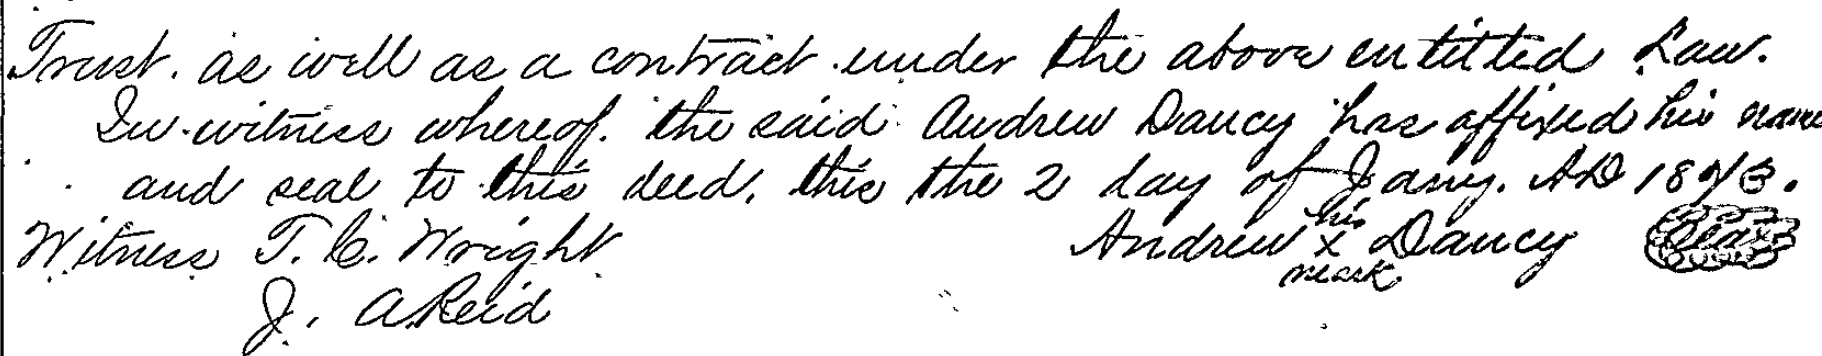 Trust. as well as a contract under the above entitled Law.
In witness whereof. the said Andrew Dancy has affixed his name
and seal to this deed, this the 2 day of Jany. AD 1873.
his
Witness T. C. Wright Andrew x Dancy Seal
mark
J. A Reid